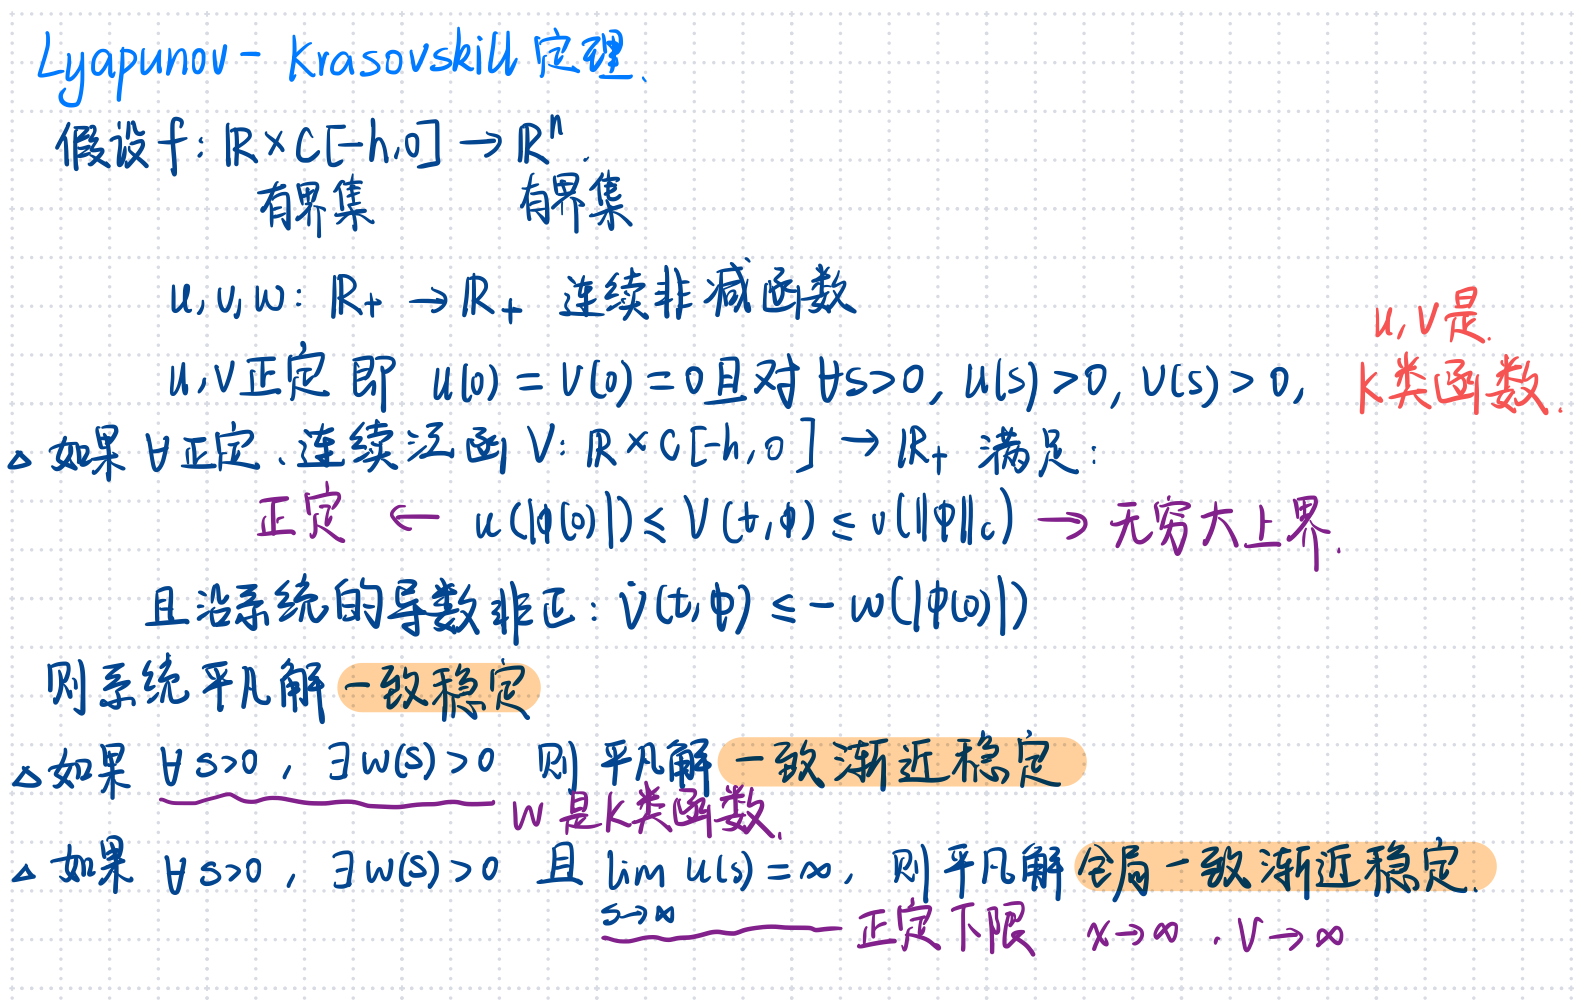 Lyapunov - Krasovskill 定理.
假设 f: ℝ × C[-h,0] → ℝⁿ.
有界集 有界集
u, v, w: ℝ₊ → ℝ₊ 连续非减函数
u, v 正定 即 u(0) = v(0) = 0 且对 ∀s>0, u(s) >0, v(s) > 0,
u, v 是.
K类函数.
△ 如果 ∀正定、连续泛函 V: ℝ × C[-h,0] → ℝ₊ 满足:
正定 ← u(|φ(0)|) ≤ V(t,φ) ≤ v(‖φ‖c) → 无穷大上界.
且沿系统的导数非正: V̇(t,φ) ≤ - w(|φ(0)|)
则系统平凡解 一致稳定
△ 如果 ∀s>0, ∃w(s)>0 则 平凡解 一致渐近稳定
w 是K类函数.
△ 如果 ∀s>0, ∃w(s)>0 且 lim u(s) = ∞, 则平凡解 全局一致渐近稳定.
s→∞
正定下限 x→∞ , V→∞